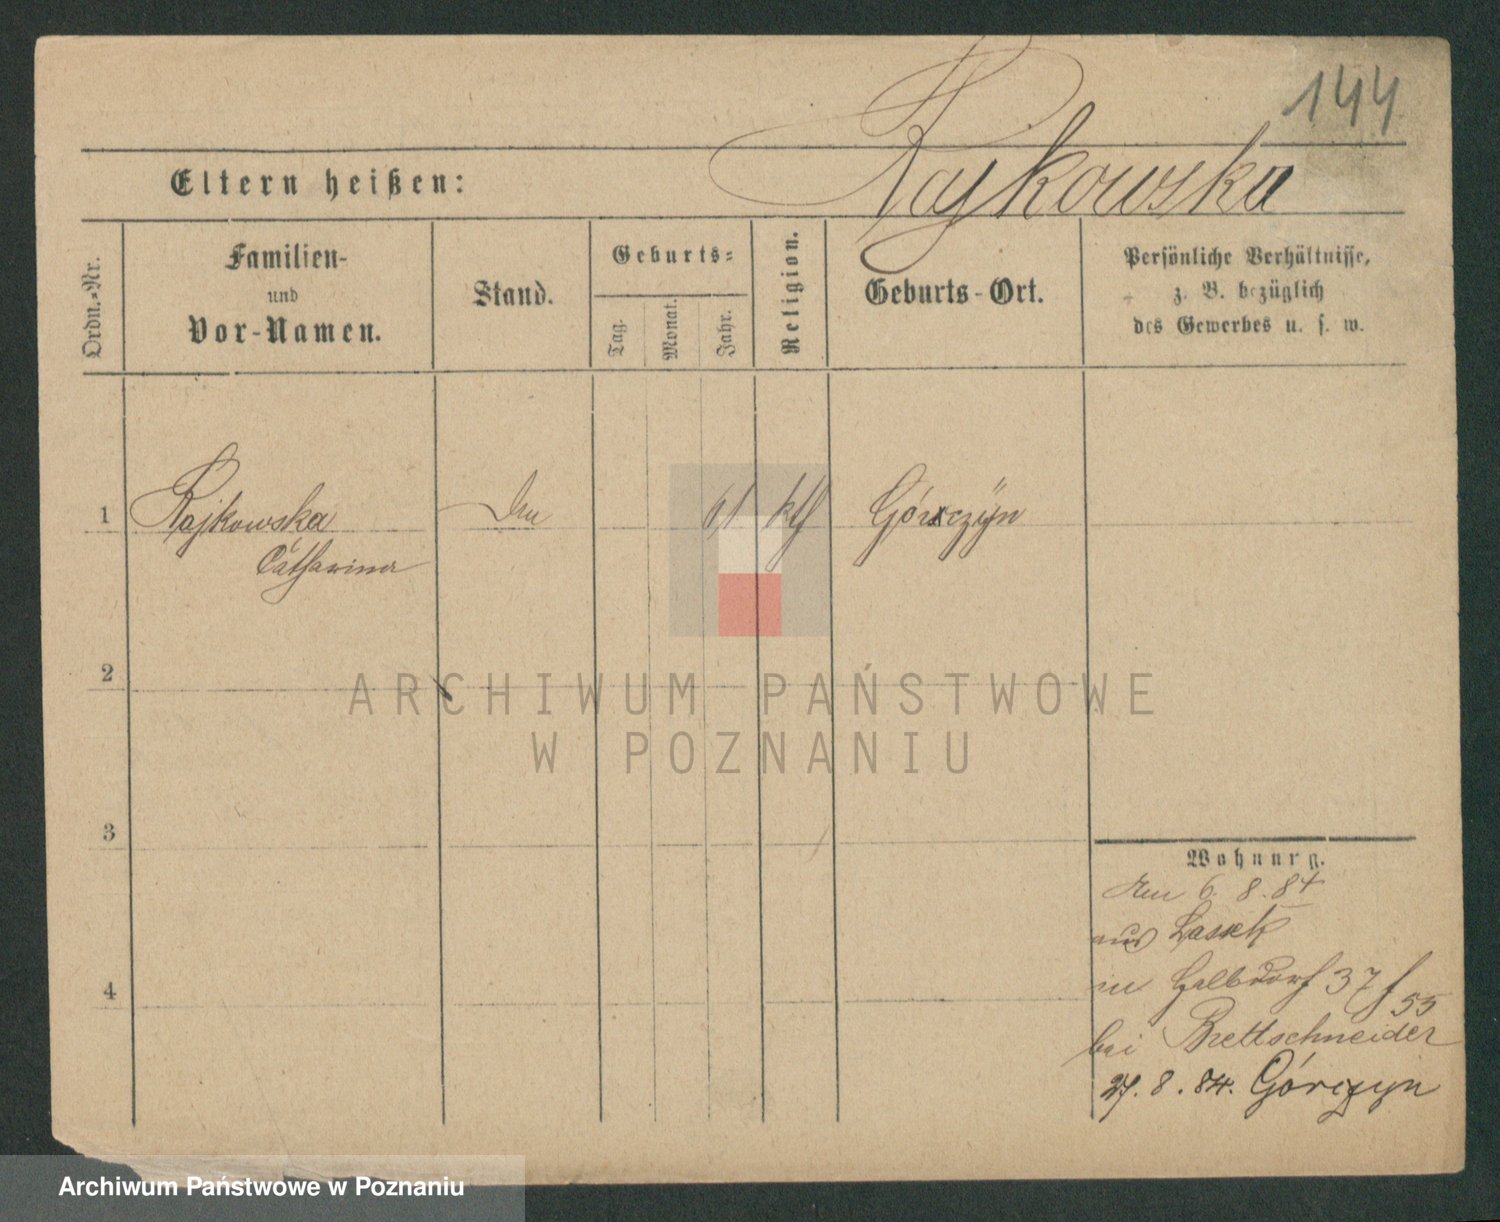 144
Rajkowska
Eltern heißen:
Ordn.-Nr.
Familien-
und
Vor-Namen.
Stand.
Geburts-
Tag.
Monat.
Jahr.
Religion.
Geburts-Ort.
Persönliche Verhältnisse,
z. B. bezüglich
des Gewerbes u. s. w.
1 Rajkowska 61 kth Górczyn
Catharina
2
ARCHIWUM PAŃSTWOWE
W POZNANIU
3
Wohnung.
Am 6. 8. 84
aus Lassek
in Halbdorf 37 f 55
4
bei Brettschneider
27. 8. 84. Górczyn
Archiwum Państwowe w Poznaniu